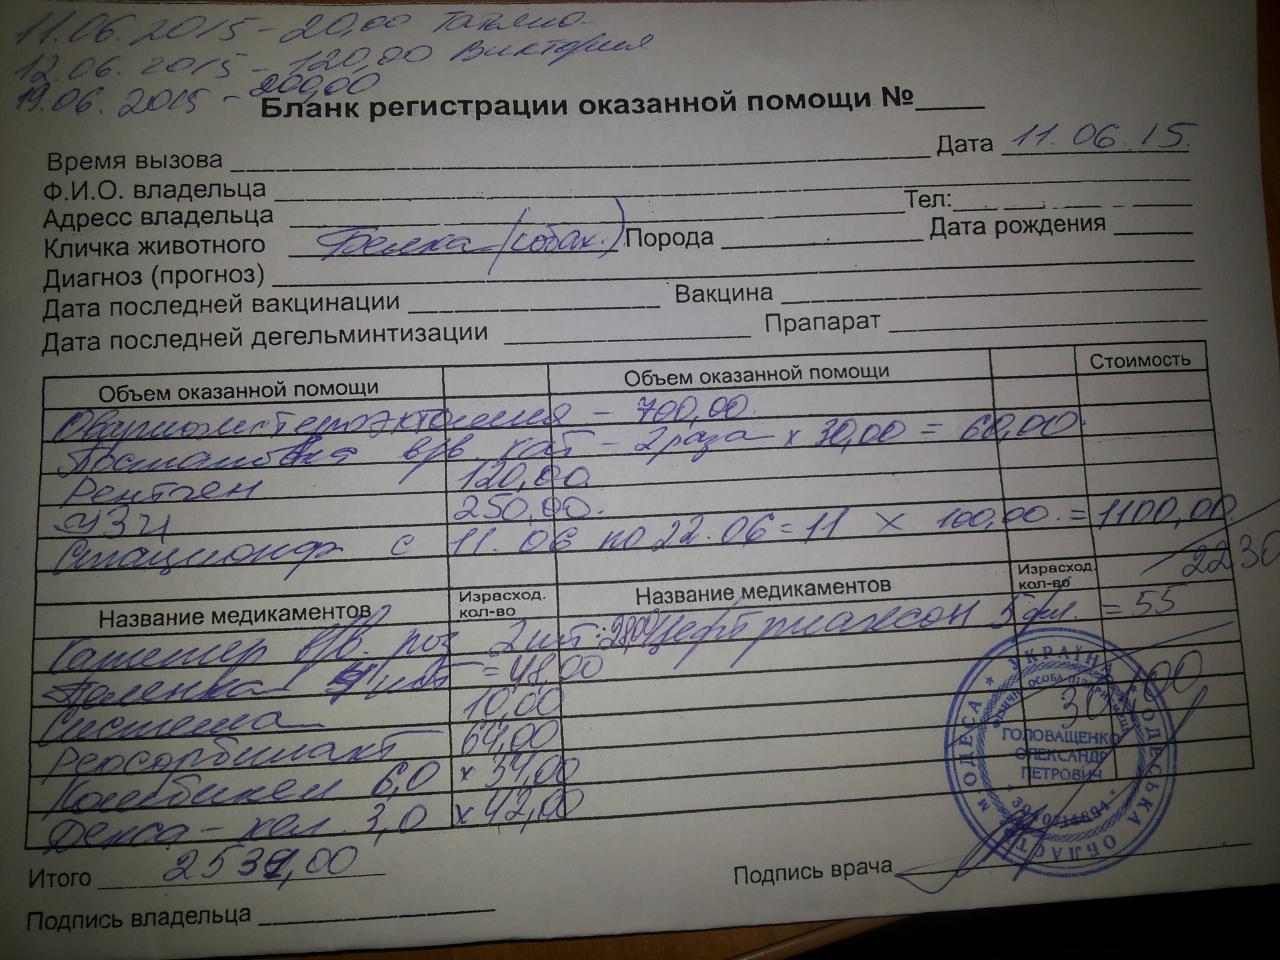 11.06.2015 - 20,00 Татьяна
12.06.2015 - 120,00 Виктория
19.06.2015 - 200,00
Бланк регистрации оказанной помощи №____
Время вызова Дата 11.06.15.
Ф.И.О. владельца
Адресс владельца Тел:
Кличка животного Белка (собак.) Порода Дата рождения
Диагноз (прогноз)
Дата последней вакцинации Вакцина
Дата последней дегельминтизации Прапарат
Объем оказанной помощи Объем оказанной помощи Стоимость
Овариогистероэктомия - 700,00.
Постановка в/в кат - 2 раза х 30,00 = 60,00.
Рентген 120,00.
УЗИ 250,00.
Стационар с 11.06 по 22.06 = 11 х 100,00. = 1100,00.
2230
Название медикаментов Израсход. кол-во Название медикаментов Израсход. кол-во
Катетер в/в. роз 2 шт. Цефтриаксон 5 фл. = 55
Пеленка шт = 48,00
Система 10,00
Реосорбилакт 64,00
Комбикел 6,0 х 34,00
Декса - кел 3,0 х 42,00
УКРАЇНА * ОДЕСЬКА ОБЛАСТЬ * М. ОДЕСА
ГОЛОВАЩЕНКО
ОЛЕКСАНДР
ПЕТРОВИЧ
Итого
Подпись врача
Подпись владельца